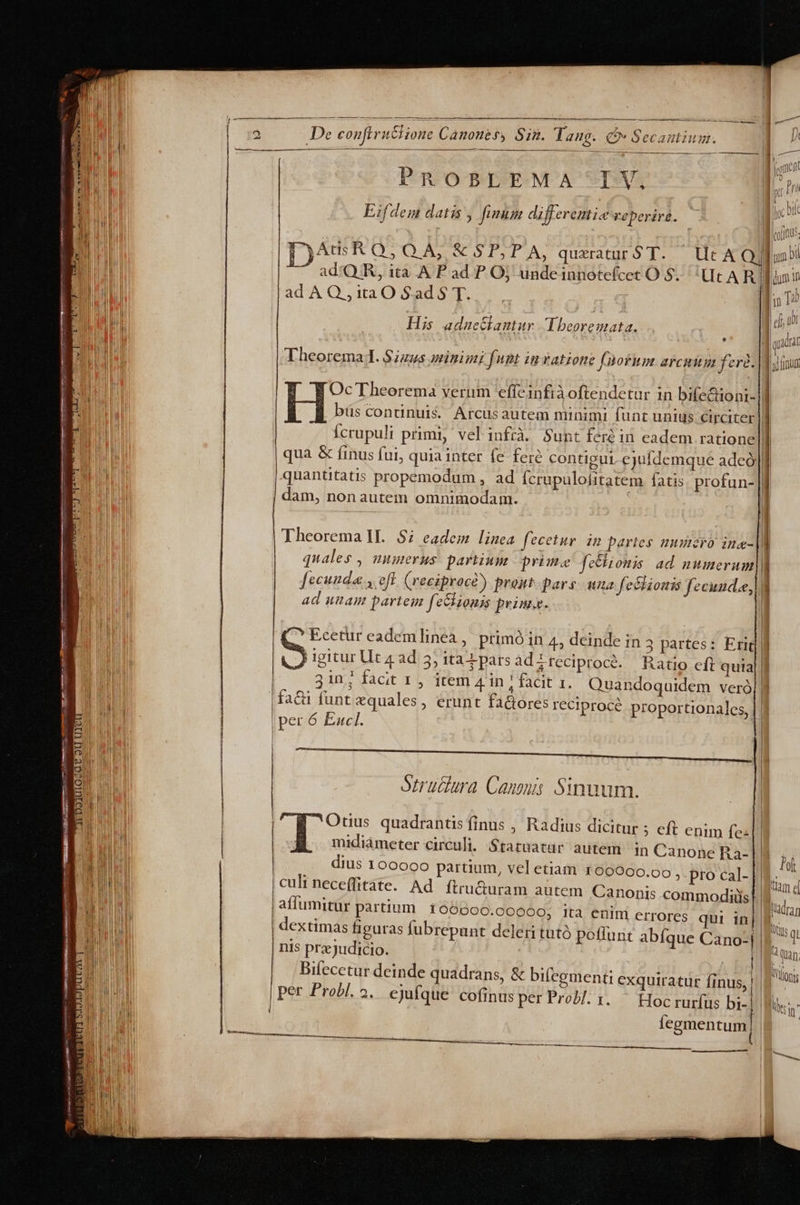 2 De conſtructione Canonis, Sin. Tang. & Secantium.
PROBLEMA IV.
Eiſdem datis, ſinûm differentiæ reperire.
DAtis R Q, Q A, & S P, P A, quæratur S T. Ut A Q
ad Q R, ita A P ad P O; unde innoteſcet O S. Ut A R
ad A Q, ita O S ad S T.
His adnectantur Theoremata.
Theorema I. Sinus minimi ſunt in ratione ſuorum arcuum ferè.
HOc Theorema verum eſſe infrà oſtendetur in biſectioni-
bus continuis. Arcus autem minimi ſunt unius circiter
ſcrupuli primi, vel infrà. Sunt ferè in eadem ratione
qua & ſinus ſui, quia inter ſe ferè contigui ejuſdemque adeò
quantitatis propemodum, ad ſcrupuloſitatem ſatis profun-
dam, non autem omnimodam.
Theorema II. Si eadem linea ſecetur in partes numero inæ-
quales, numerus partium primæ ſectionis ad numerum
ſecundæ, eſt (reciprocè) prout pars una ſectionis ſecundæ,
ad unam partem ſectionis primæ.
SEcetur eadem linea, primò in 4, deinde in 3 partes: Erit
igitur Ut 4 ad 3, ita ⅓ pars ad ¼ reciprocè. Ratio eſt quia
3 in ⅓ facit 1, item 4 in ¼ facit 1. Quandoquidem verò
facti ſunt æquales, erunt factores reciprocè proportionales,
per 6 Eucl.
Structura Canonis Sinuum.
TOtius quadrantis ſinus, Radius dicitur; eſt enim ſe-
midiameter circuli. Statuatur autem in Canone Ra-
dius 100000 partium, vel etiam 100000.00, pro cal-
culi neceſſitate. Ad ſtructuram autem Canonis commodiùs
aſſumitur partium 100000.00000, ita enim errores qui in
dextimas figuras ſubrepunt deleri tutò poſſunt abſque Cano-
nis præjudicio.
Biſecetur deinde quadrans, & biſegmenti exquiratur ſinus,
per Probl. 2. ejuſque coſinus per Probl. 1. Hoc rurſus bi-
ſegmentum